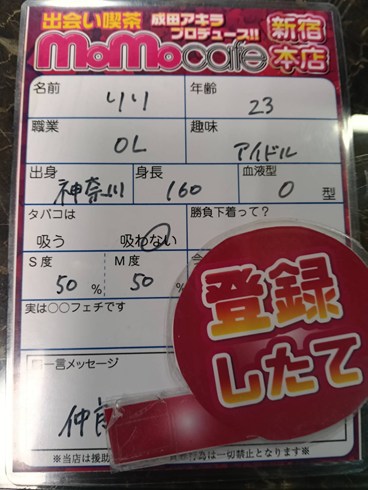 出会い喫茶 成田アキラ プロデュース!!
MoMocafe 新宿本店
名前 りり 年齢 23
職業 OL 趣味 アイドル
出身 神奈川 身長 160 血液型 O 型
タバコは 吸う 吸わない 勝負下着って?
S度 50 % M度 50
実は○○フェチです
登録したて
一言メッセージ
仲良
※当店は援助 行為は一切禁止となります※